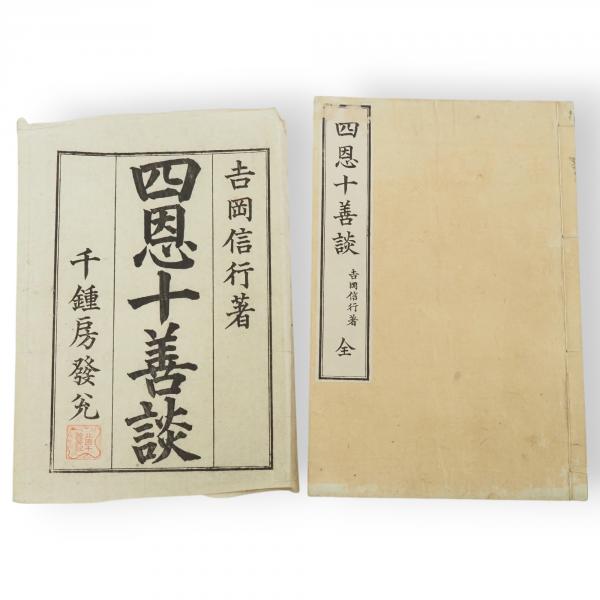 吉岡信行著
四恩十善談
千鍾房發兌
四恩十善談
吉岡信行著
全